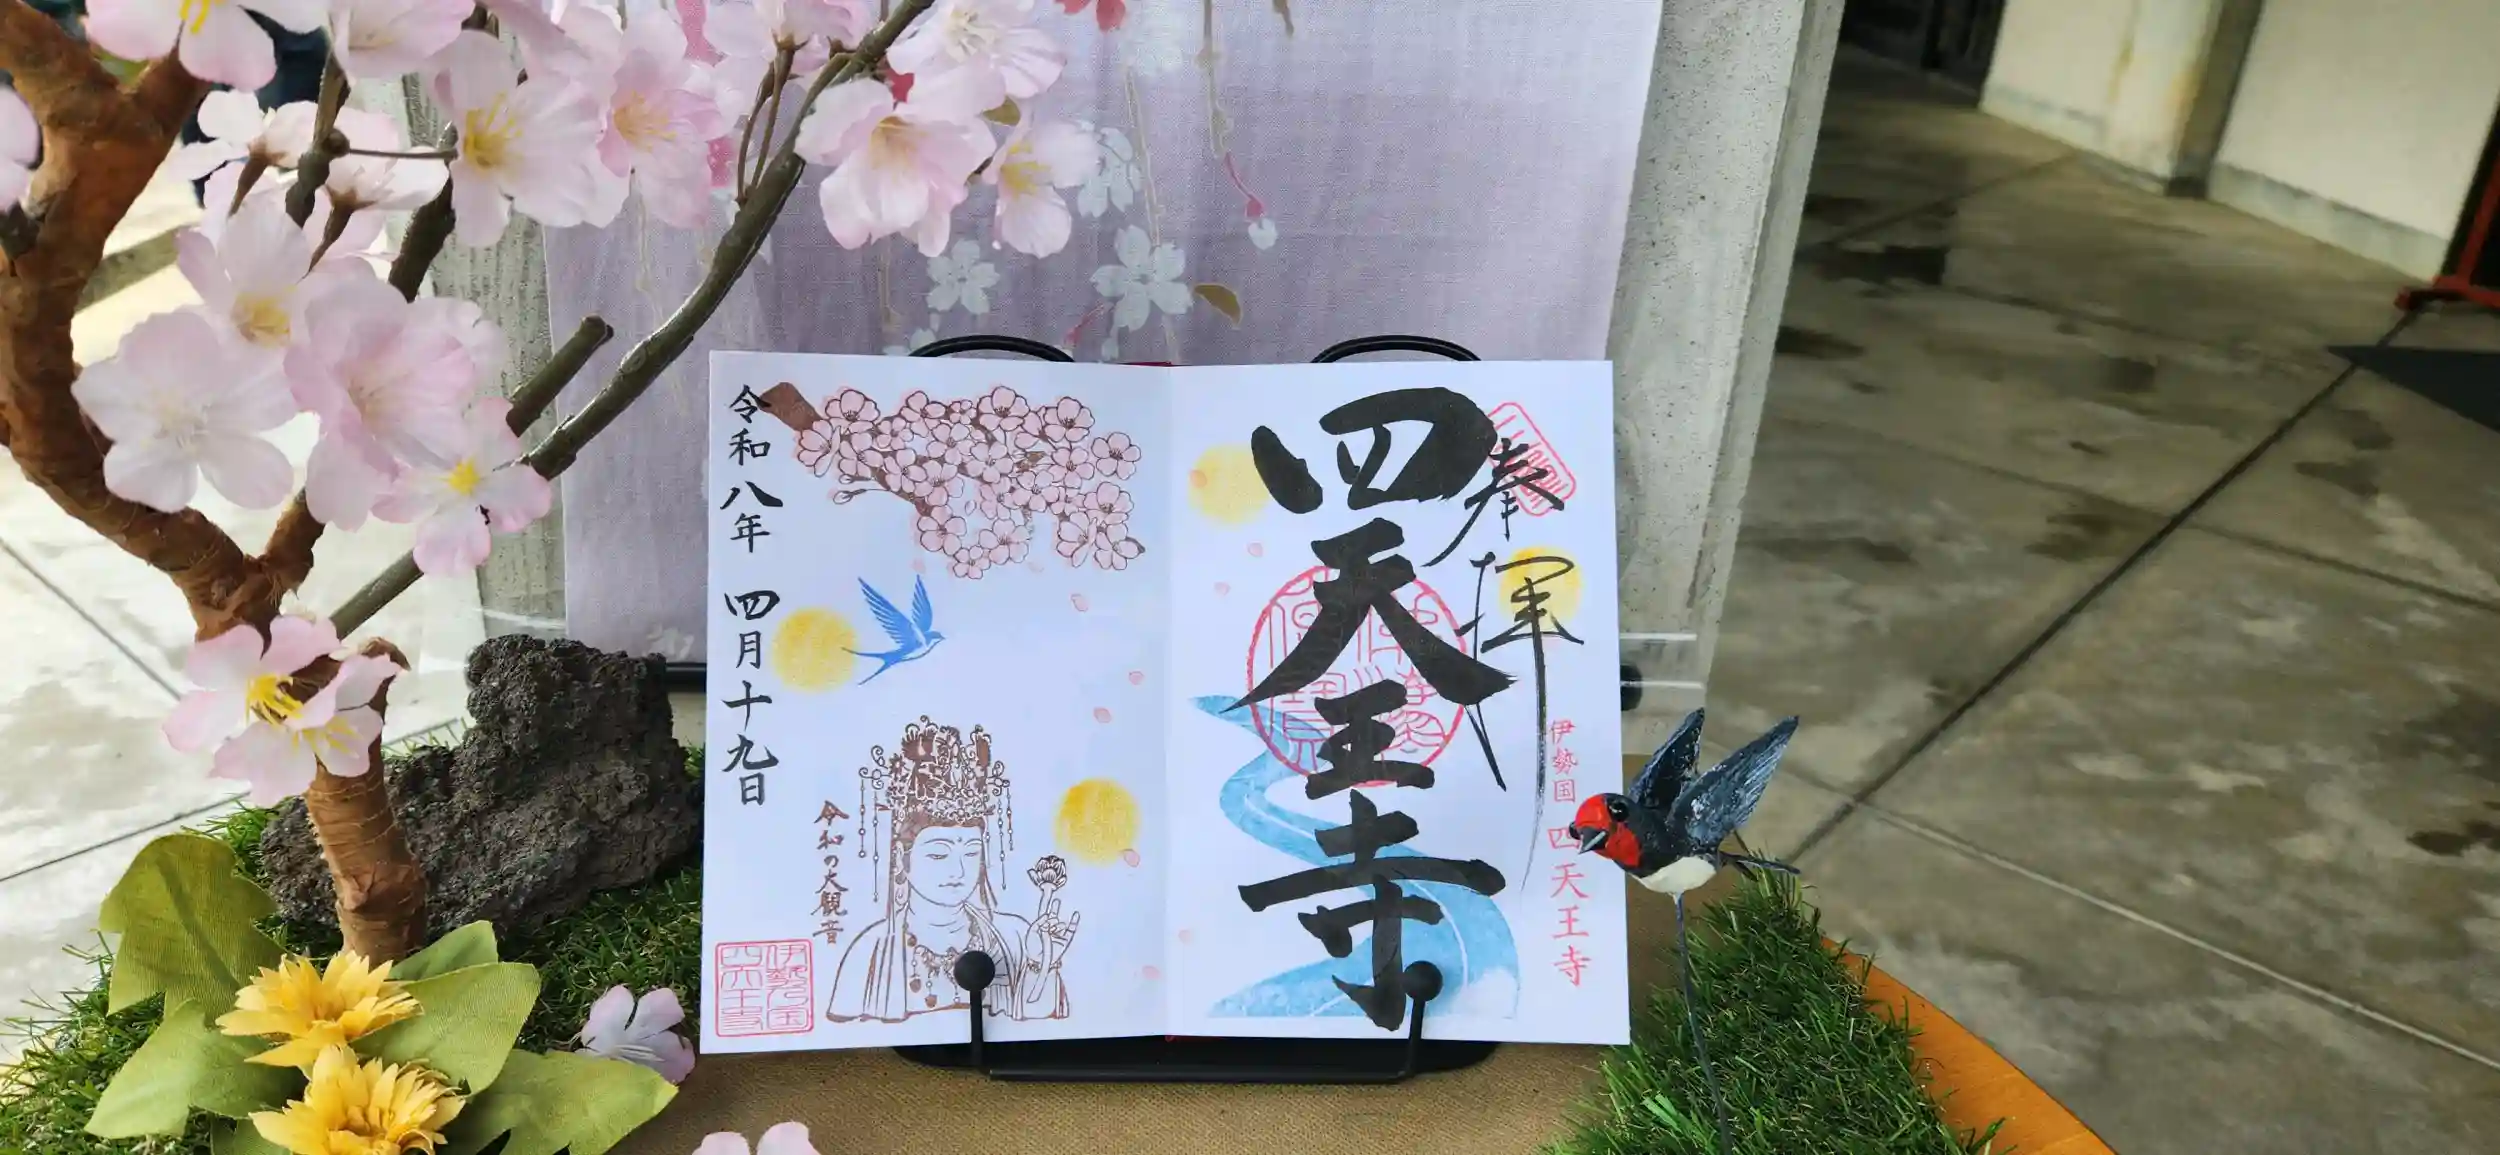 奉拝
四天王寺
伊勢国 四天王寺
令和八年 四月十九日
令和の大観音
伊勢乃国
四天王寺